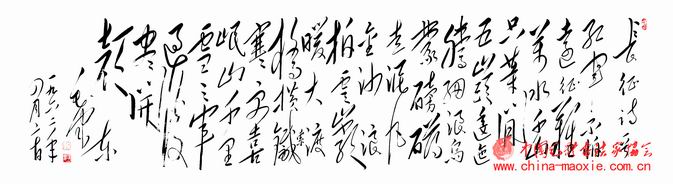 长征诗一首
红军不怕
远征难
万水千山
只等闲
五岭逶迤
腾细浪乌
蒙磅礴
走泥丸
金沙浪
拍云崖
暖大渡
桥横铁索
寒更喜
岷山千里
雪三军
过后
尽开
颜
毛泽东
一九六二年
四月二十日
www.china-maoxie.com